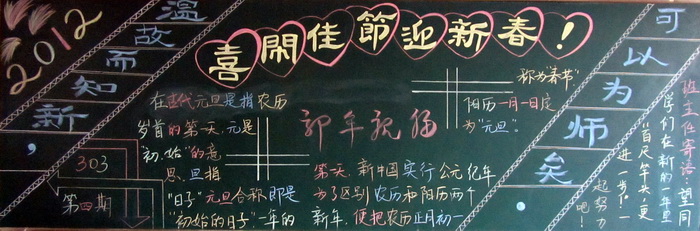 2012
温故而知新，
303
第四期
喜闹佳節迎新春！
在古代元旦是指农历
岁首的第一天.元是
"初.始"的意
思.旦指
"日子"元旦合称即是
"初始的日子".一年的
第一天.新中国实行公元纪年
为了区别农历和阳历两个
新年,便把农历正月初一
称为"春节"
阳历一月一日定
为"元旦"。
可以为师矣
班主任寄语:望同
学们在新的一年里
"百尺竿头.更
进一步"
一起努力
吧!